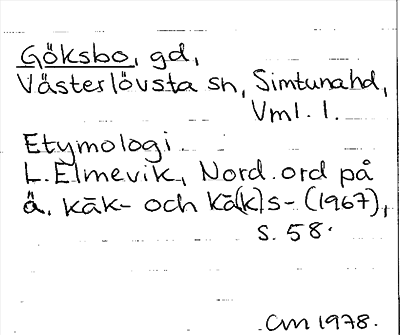 Göksbo, gd,
Västerlövsta sn, Simtunahd,
Vml. l.
Etymologi
L. Elmevik, Nord. ord på
ä. kāk- och kā(k)s- (1967),
s. 58.
CM 1978.